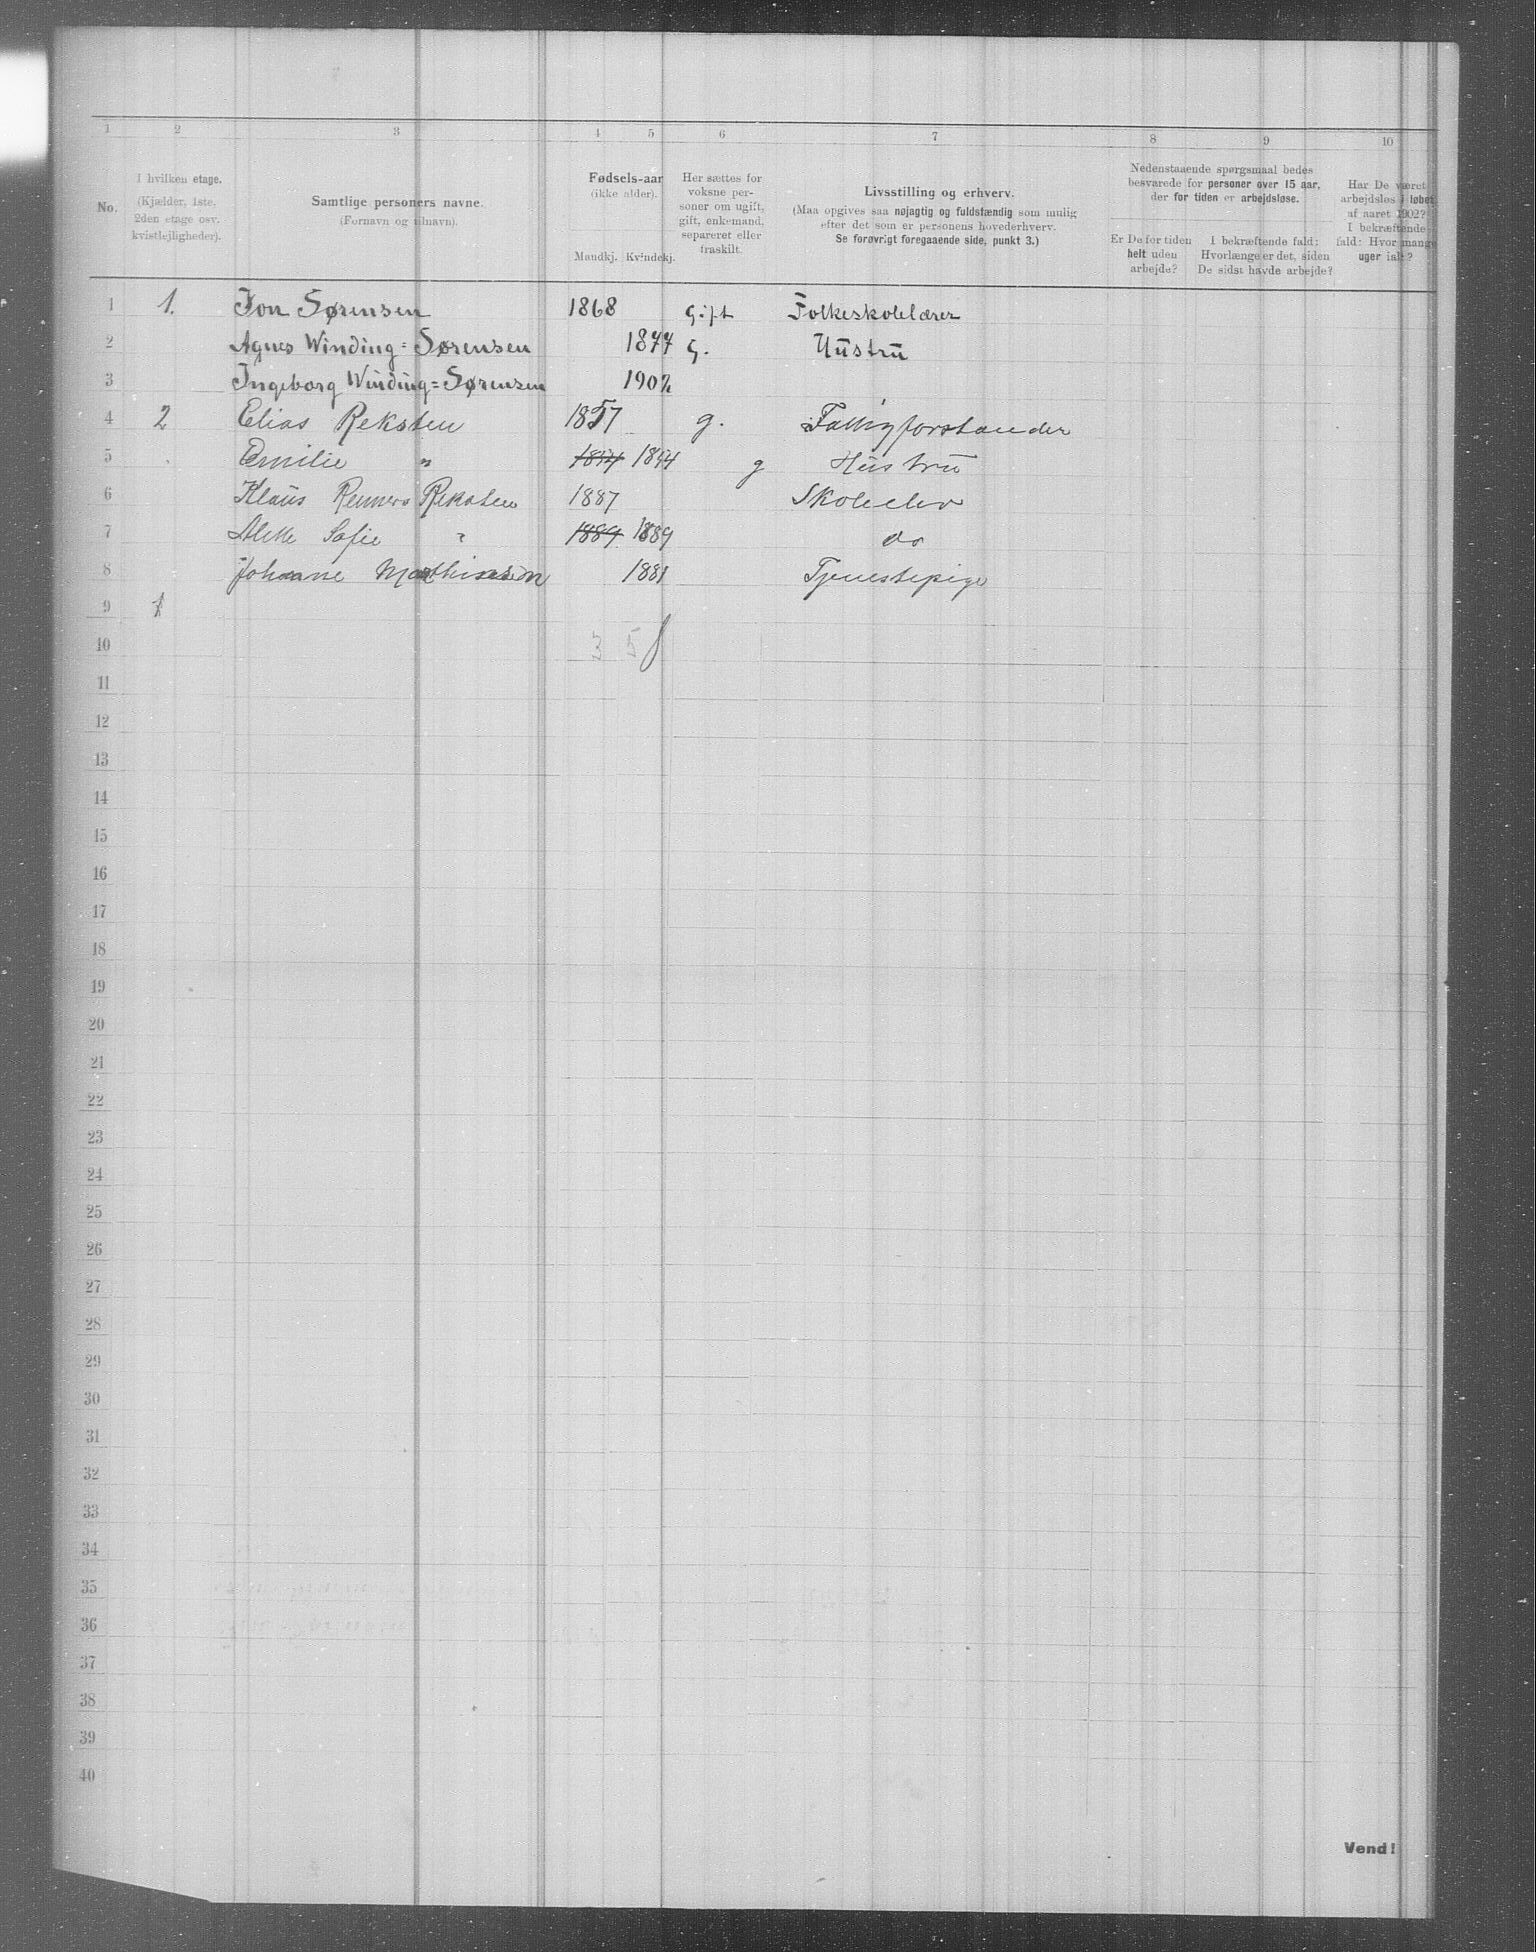 1 2 3 4 5 6 7 8 9 10
No.
I hvilken etage.
(Kjælder, 1ste,
2den etage osv.
kvistlejligheder).
Samtlige personers navne.
(Fornavn og tilnavn).
Fødsels-aar
(ikke alder).
Mandkj. Kvindekj.
Her sættes for
voksne per-
soner om ugift,
gift, enkemand,
separeret eller
fraskilt.
Livsstilling og erhverv.
(Maa opgives saa nøjagtig og fuldstændig som mulig
efter det som er personens hovederhverv.
Se forøvrigt foregaaende side, punkt 3.)
Nedenstaaende spørgsmaal bedes
besvarede for personer over 15 aar,
der for tiden er arbejdsløse.
Er De for tiden
helt uden
arbejde?
I bekræftende fald:
Hvorlænge er det, siden
De sidst havde arbejde?
Har De været
arbejdsløs i løbet
af aaret 1902?
I bekræftende
fald: Hvor mange
uger ialt?
1 1. Jon Sørensen 1868 Gift Folkeskolelærer
2 Agnes Winding=Sørensen 1877 G. Hustru
3 Ingeborg Winding=Sørensen 1902
4 2 Elias Reksten 1857 g. Fattigforstander
5 Emilie " 1854 1854 g Hustru
6 Klaus Reksten 1887 Skoleelev
7 Sofie " 1889 1889 do
8 Johanne Mathiesen 1881 Tjenestepige
9 1
10 3 5
11
12
13
14
15
16
17
18
19
20
21
22
23
24
25
26
27
28
29
30
31
32
33
34
35
36
37
38
39
40
Vend!